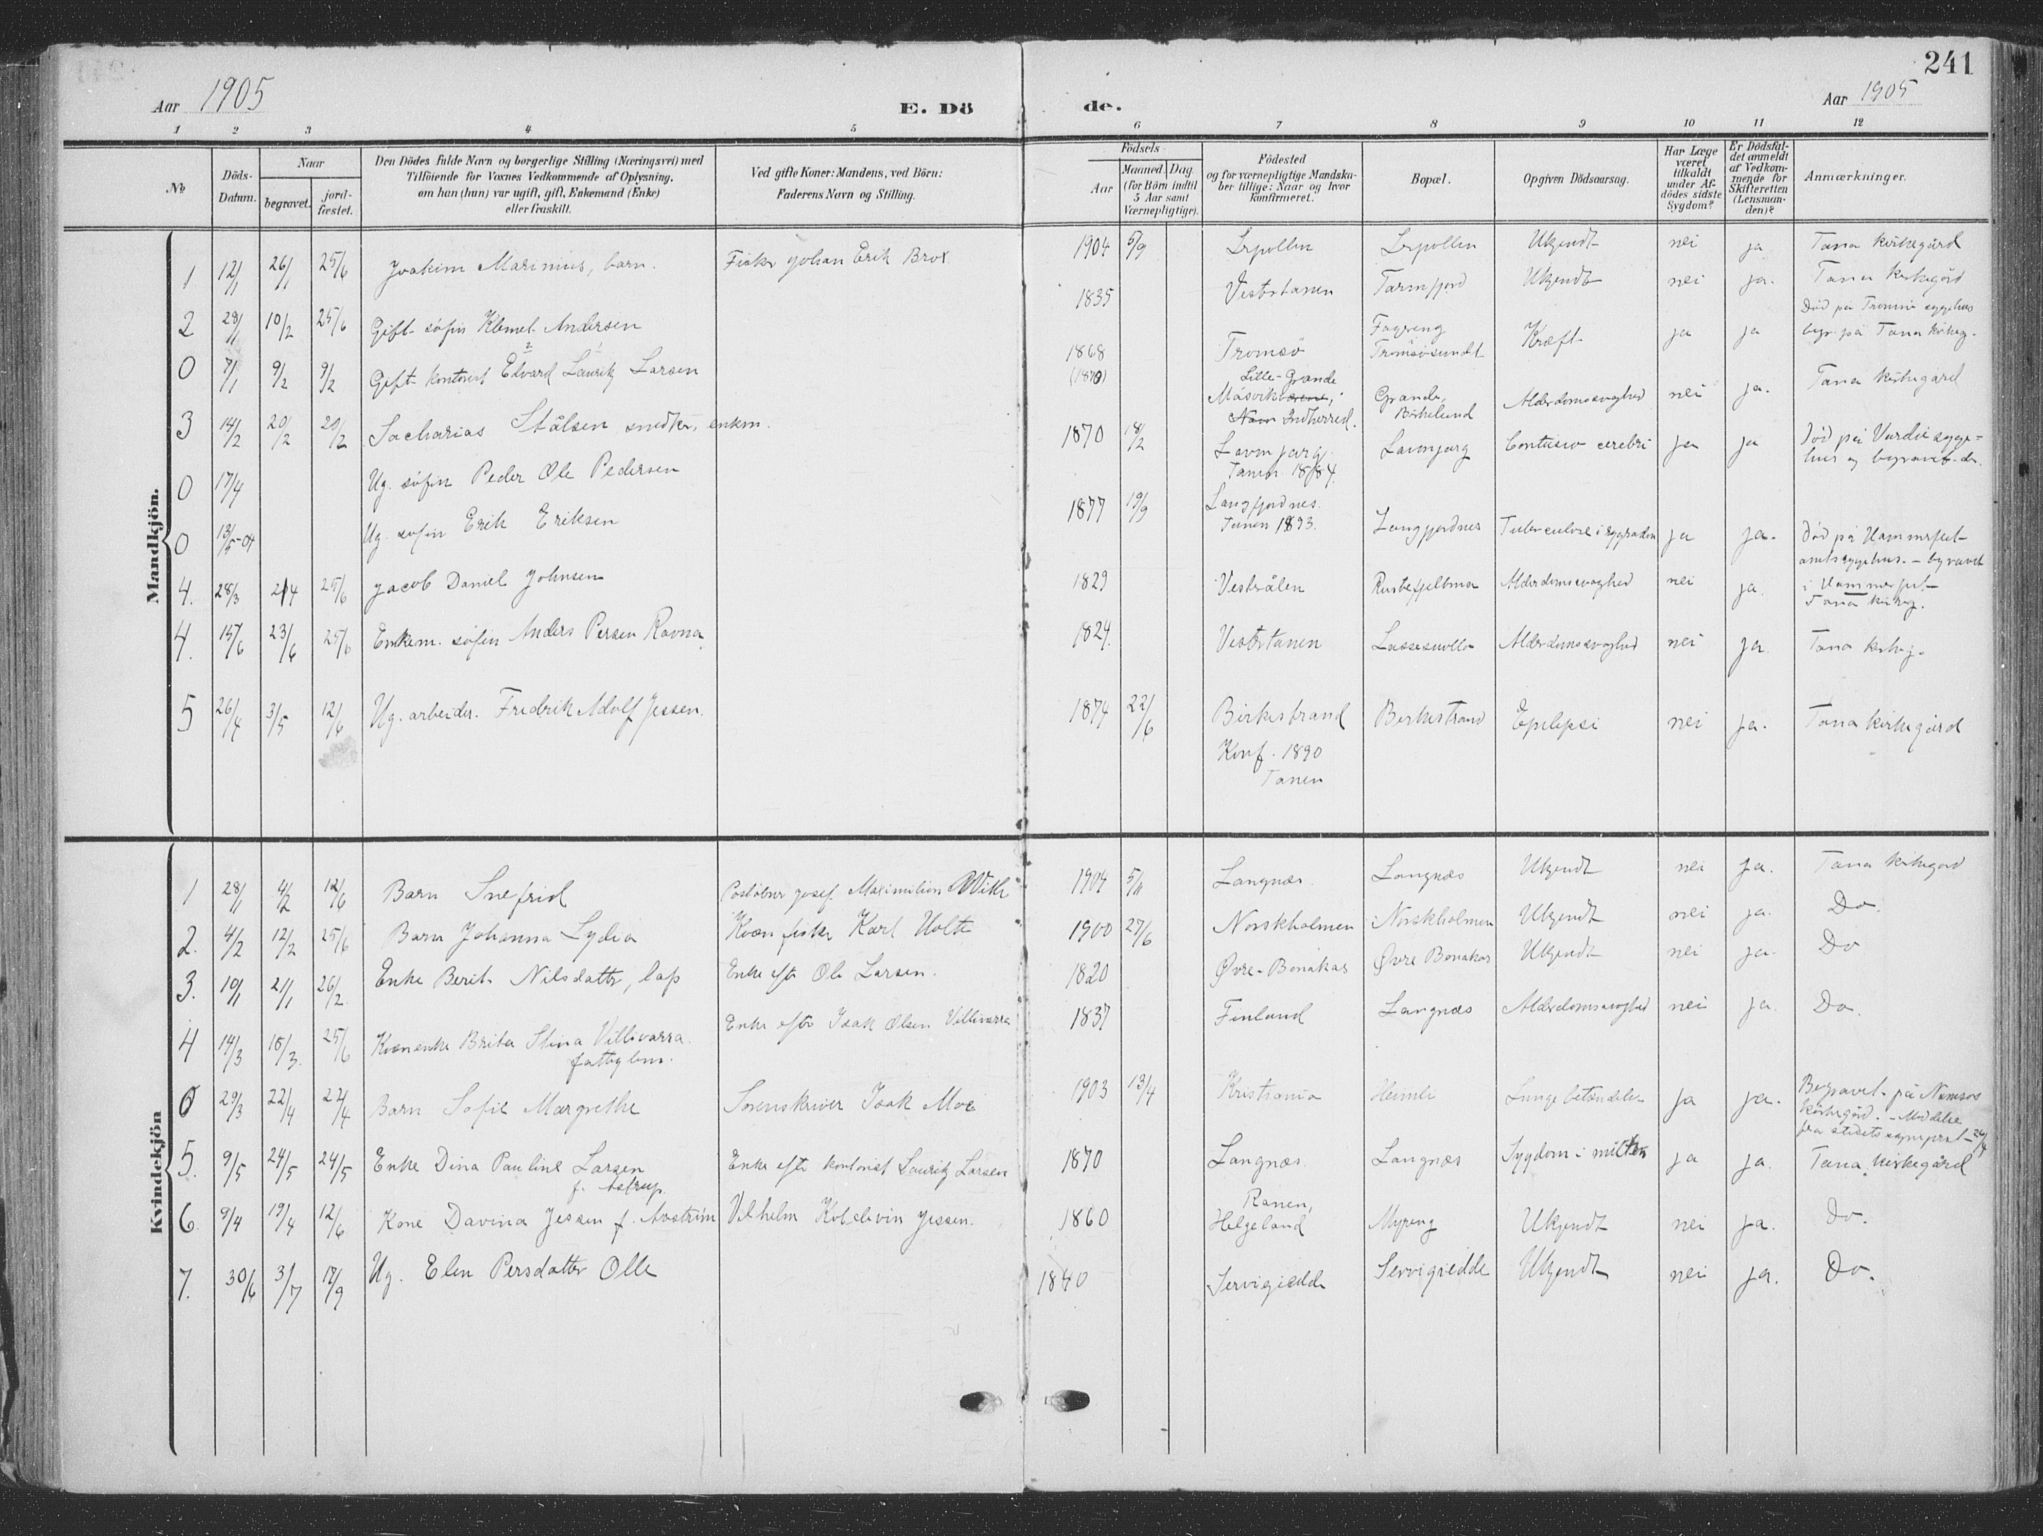 241
Aar 1905 E. Dö de. Aar 1905
1 2 3 4 5 6 7 8 9 10 11 12
No Döds-Datum. Naar begravet. jord-fæstet. Den Dödes fulde Navn og borgerlige Stilling (Næringsvei) med Tilföiende for Voxnes Vedkommende af Oplysning, om han (hun) var ugift, gift, Enkemand (Enke) eller fraskilt. Ved gifte Koner: Mandens, ved Börn: Faderens Navn og Stilling. Födsels- Aar Maaned. Dag (for Börn indtil 5 Aar samt Værnepligtige). Födested og for værnepligtige Mandska-ber tillige: Naar og hvor konfirmeret. Bopæl. Opgiven Dödsaarsag. Har Læge været tilkaldt under Af-dödes sidste Sygdom? Er Dödsfal-det anmeldt af Vedkom-mende for Skifteretten (Lensman-den)? Anmærkninger.
Mandkjön.
1 12/1 26/1 25/6 Joakim Marinius, barn. Fisker Johan Erik Brox 1904 5/9 Lerpollen Lerpollen Ukjendt nei ja Tana kirkegård
2 28/1 10/2 25/6 Gift søfin Klemet Andersen 1835 Vestertanen Tarmfjord Ukjendt nei ja. Tana kirkegård
0 7/1 9/2 9/2 Gift kontorist Edvard Lauritz Larsen 1868 Tromsø Fagereng Tromsøsundet Kræft ja ja Død på Tromsø sygehus begr. på Tana kirkeg.
3 14/2 20/2 20/2 Sacharias Stålsen snedker, enkm. (1870) Lille-Grande Måsvik Nam Indherred. Grande, Birkelund Alderdomssvaghed nei ja. Tana kirkegård
0 17/4 Ug. søfin Peder Ole Pedersen 1870 18/2 Lavmjarg Tanen 1884. Lavmjarg Contusio cerebri ja ja Død på Vardø syge-hus og begravet der.
0 13/5-04 Ug. søfin Erik Eriksen 1877 19/9 Langfjordnes Tanen 1893. Langfjordnes Tuberculose i rygraden ja ja. Død på Hammerfest amtssygehus. - begravet i Hammerfest
4. 28/3 2/4 25/6 Jacob Daniel Johnsen 1829 Vesterålen Rustefjelbma Alderdomssvaghed nei ja. Tana kirkeg.
4. 15/6 23/6 25/6 Enkem. søfin Anders Persen Ravna 1824. Vestertanen Alderdomssvaghed nei ja. Tana kirkeg.
5 26/4 3/5 12/6 Ug. arbeider. Fredrik Adolf Jessen. 1874 22/6 Birkestrand Konf. 1890 Tanen Birkestrand Epilepsi nei ja. Tana kirkegård
Kvindekjön
1 28/1 4/2 12/6 Barn Snefrid Poståbner Josef Maximilian Wilk 1904 5/11 Langnæs. Langnæs Ukjendt nei ja. Tana kirkegård
2. 4/2 12/2 25/6 Barn Johanna Lydia Kvæn fisker Karl Holte 1900 27/6 Norskholmen Norskholmen Ukjendt nei ja. Do.
3. 10/1 21/1 26/2. Enke Berit Nilsdatter, lap Enke efter Ole Larsen. 1820 Øvre-Bonakas Øvre Bonakas Ukjendt nei ja. Do
4 14/3 18/3. 25/6 Kvænenke Brita Stina Villivarra. fattiglem. Enke efter Isak Olsen Villivarra 1837 Finland Langnæs Alderdomssvaghed nei ja. Do.
0 29/3 22/4 22/4 Barn Sofie Margrethe Sorenskriver Isak Moe 1903 13/4 Kristiania Heimli Lungebetændelse ja ja. Begravet på Namsos kirkegård. - Meddelse fra stedets sognepræst
5. 9/5 24/5 24/5 Enke Dina Pauline Larsen f. Astrup Enke efter kontorist Lauritz Larsen 1870 Langnæs. Langnæs Sygdom i milten ja ja. Tana kirkegård
6. 9/4 19/4 12/6 Kone Davina Jessen f. Vilhelm Jessen. 1860 Ranen, Helgeland Myreng Ukjendt nei ja. Do.
7. 30/6 3/7 17/9 Ug. Elen Persdatter Olle 1840 Servigiedde Servigiedde Ukjendt nei ja. Do.